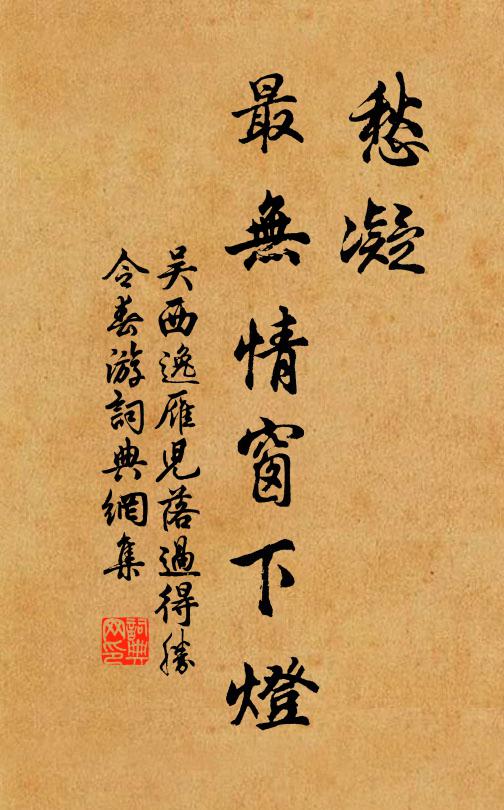 愁凝
最無情窗下燈
吳西逸雁兒落過得勝
令春游詞典網集
詞典網印